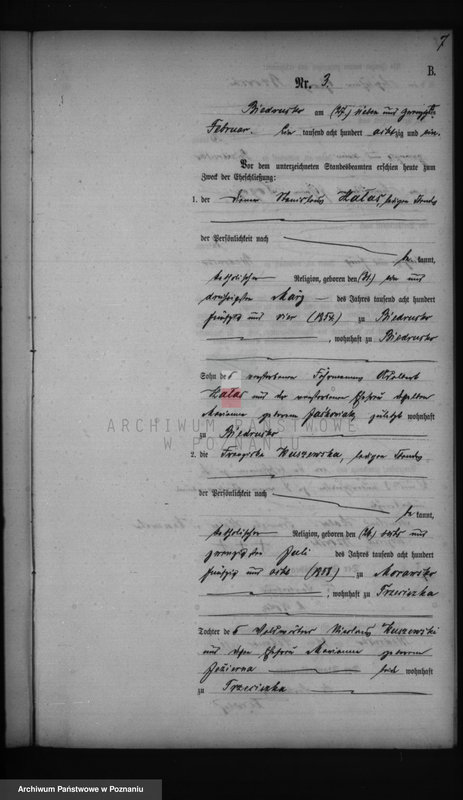 7
B.
Nr. 3.
Biedrusko am (27.) sieben und zwanzigsten
Februar. Ein tausend acht hundert achtzig und ein.
Vor dem unterzeichneten Standesbeamten erschien heute zum
Zweck der Eheschließung:
1. der Stanislaus Kałas, ledigen Standes
der Persönlichkeit nach
be kannt,
katholischer Religion, geboren den (31.) ein und
dreißigsten März des Jahres tausend acht hundert
fünfzig und vier (1854) zu Biedrusko
, wohnhaft zu Biedrusko
Sohn des verstorbenen
Kałas und der verstorbenen Ehefrau desselben
Marianna geborenen zuletzt wohnhaft
ARCHIWUM PAŃSTWOWE
W POZNANIU
zu Biedrusko
2. die Franziska Kuszewska, ledigen Standes
der Persönlichkeit nach
be kannt,
katholischer Religion, geboren den (26.) sechs und
zwanzigsten Juli des Jahres tausend acht hundert
fünfzig und acht (1858) zu Morawsko
, wohnhaft zu Trzeciszka
Tochter des Nikolaus Kuszewski
und dessen Ehefrau Marianna geborenen
beide wohnhaft
zu Trzeciszka
Archiwum Państwowe w Poznaniu